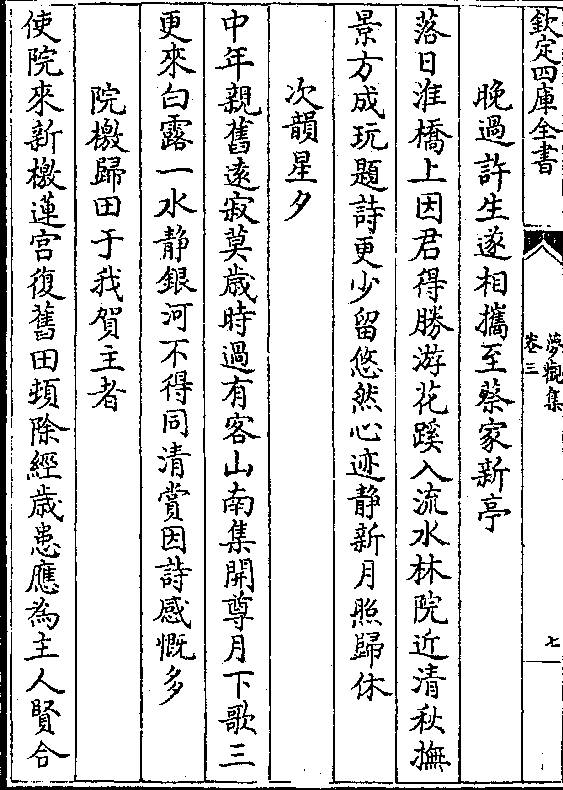 欽定四庫全書
夢觀集
卷三
七
晚過許生遂相攜至蔡家新亭
落日淮橋上因君得勝游花蹊入流水林院近清秋撫
景方成玩題詩更少留悠然心迹静新月照歸休
次韻星夕
中年親舊逺寂莫歳時過有客山南集開尊月下歌三
更來白露一水静銀河不得同清賞因詩感慨多
院檄歸田于我賀主者
使院來新檄蓮宫復舊田頓除經歳患應為主人賢合